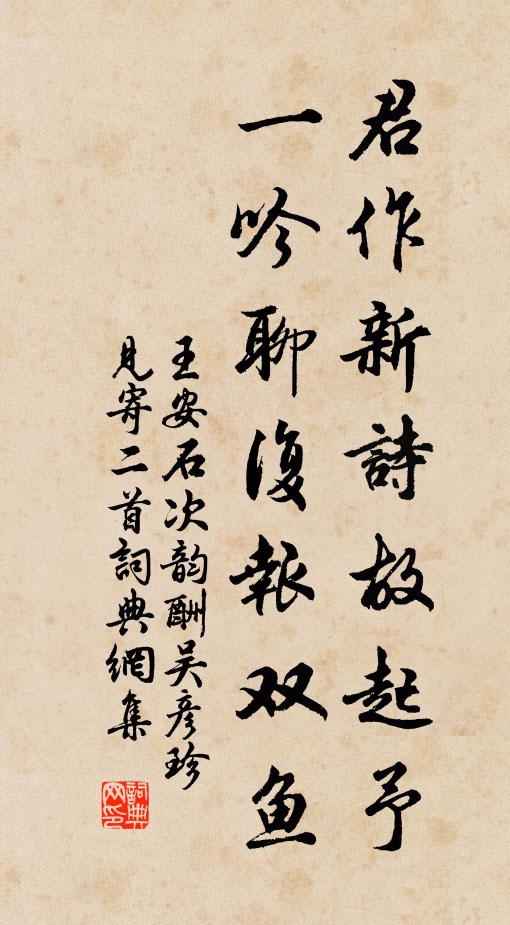 君作新詩故起予
一吟聊復報双鱼
王安石次韵酬吴彦珍
見寄二首詞典網集
詞典
网印